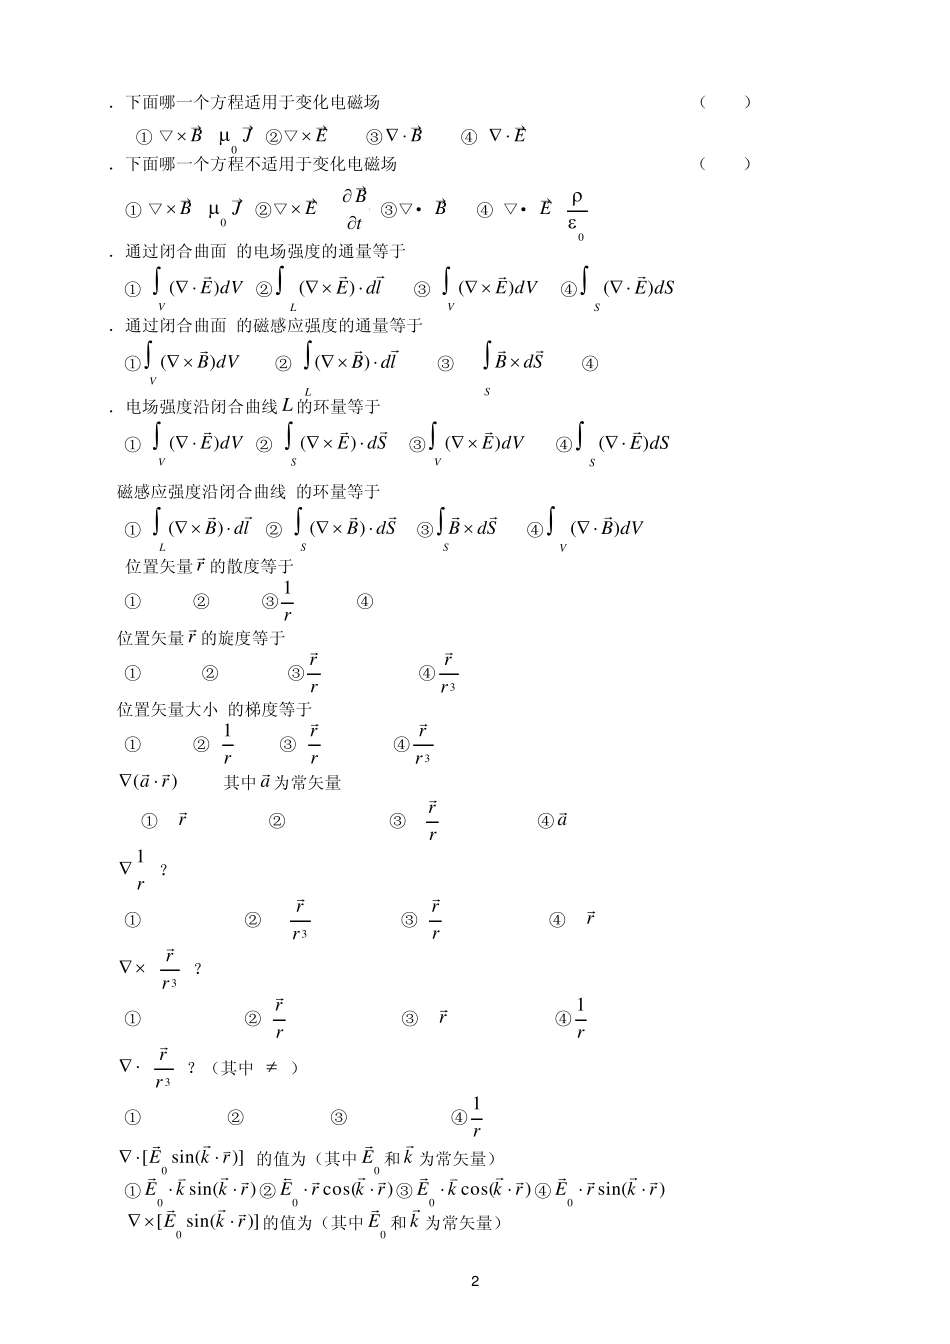 ．下面哪一个方程适用于变化电磁场 （ ）
① ▽×B⃗ μ₀J⃗ ②▽×E⃗ ③∇·B⃗ ④ ∇·E⃗
．下面哪一个方程不适用于变化电磁场 （ ）
① ▽×B⃗ μ₀J⃗ ②▽×E⃗ ∂B⃗/∂t ③▽•B⃗ ④ ▽•E⃗ ρ/ε₀
．通过闭合曲面 的电场强度的通量等于
① ∫_V(∇·E⃗)dV ②∫_L(∇×E⃗)·dl⃗ ③ ∫_V(∇×E⃗)dV ④∫_S(∇·E⃗)dS
．通过闭合曲面 的磁感应强度的通量等于
①∫_V(∇×B⃗)dV ② ∫_L(∇×B⃗)·dl⃗ ③ ∫_S B⃗×dS⃗ ④
．电场强度沿闭合曲线 L 的环量等于
① ∫_V(∇·E⃗)dV ② ∫_S(∇×E⃗)·dS⃗ ③∫_V(∇×E⃗)dV ④∫_S(∇·E⃗)dS
磁感应强度沿闭合曲线 的环量等于
① ∫_L(∇×B⃗)·dl⃗ ② ∫_S(∇×B⃗)·dS⃗ ③∫_S B⃗×dS⃗ ④∫_V(∇·B⃗)dV
位置矢量 r⃗ 的散度等于
① ② ③1/r ④
位置矢量 r⃗ 的旋度等于
① ② ③r⃗/r ④r⃗/r³
位置矢量大小 的梯度等于
① ② 1/r ③ r⃗/r ④r⃗/r³
∇(a⃗·r⃗) 其中 a⃗ 为常矢量
① r⃗ ② ③ r⃗/r ④a⃗
∇1/r ？
① ② r⃗/r³ ③ r⃗/r ④ r⃗
∇× r⃗/r³ ？
① ② r⃗/r ③ r⃗ ④1/r
∇· r⃗/r³ ？（其中 ≠ ）
① ② ③ ④1/r
∇·[E⃗₀ sin(k⃗·r⃗)] 的值为（其中 E⃗₀ 和 k⃗ 为常矢量）
①E⃗₀·k⃗ sin(k⃗·r⃗)②E⃗₀·r⃗ cos(k⃗·r⃗)③E⃗₀·k⃗ cos(k⃗·r⃗)④E⃗₀·r⃗ sin(k⃗·r⃗)
∇×[E⃗₀ sin(k⃗·r⃗)]的值为（其中 E⃗₀ 和 k⃗ 为常矢量）
2